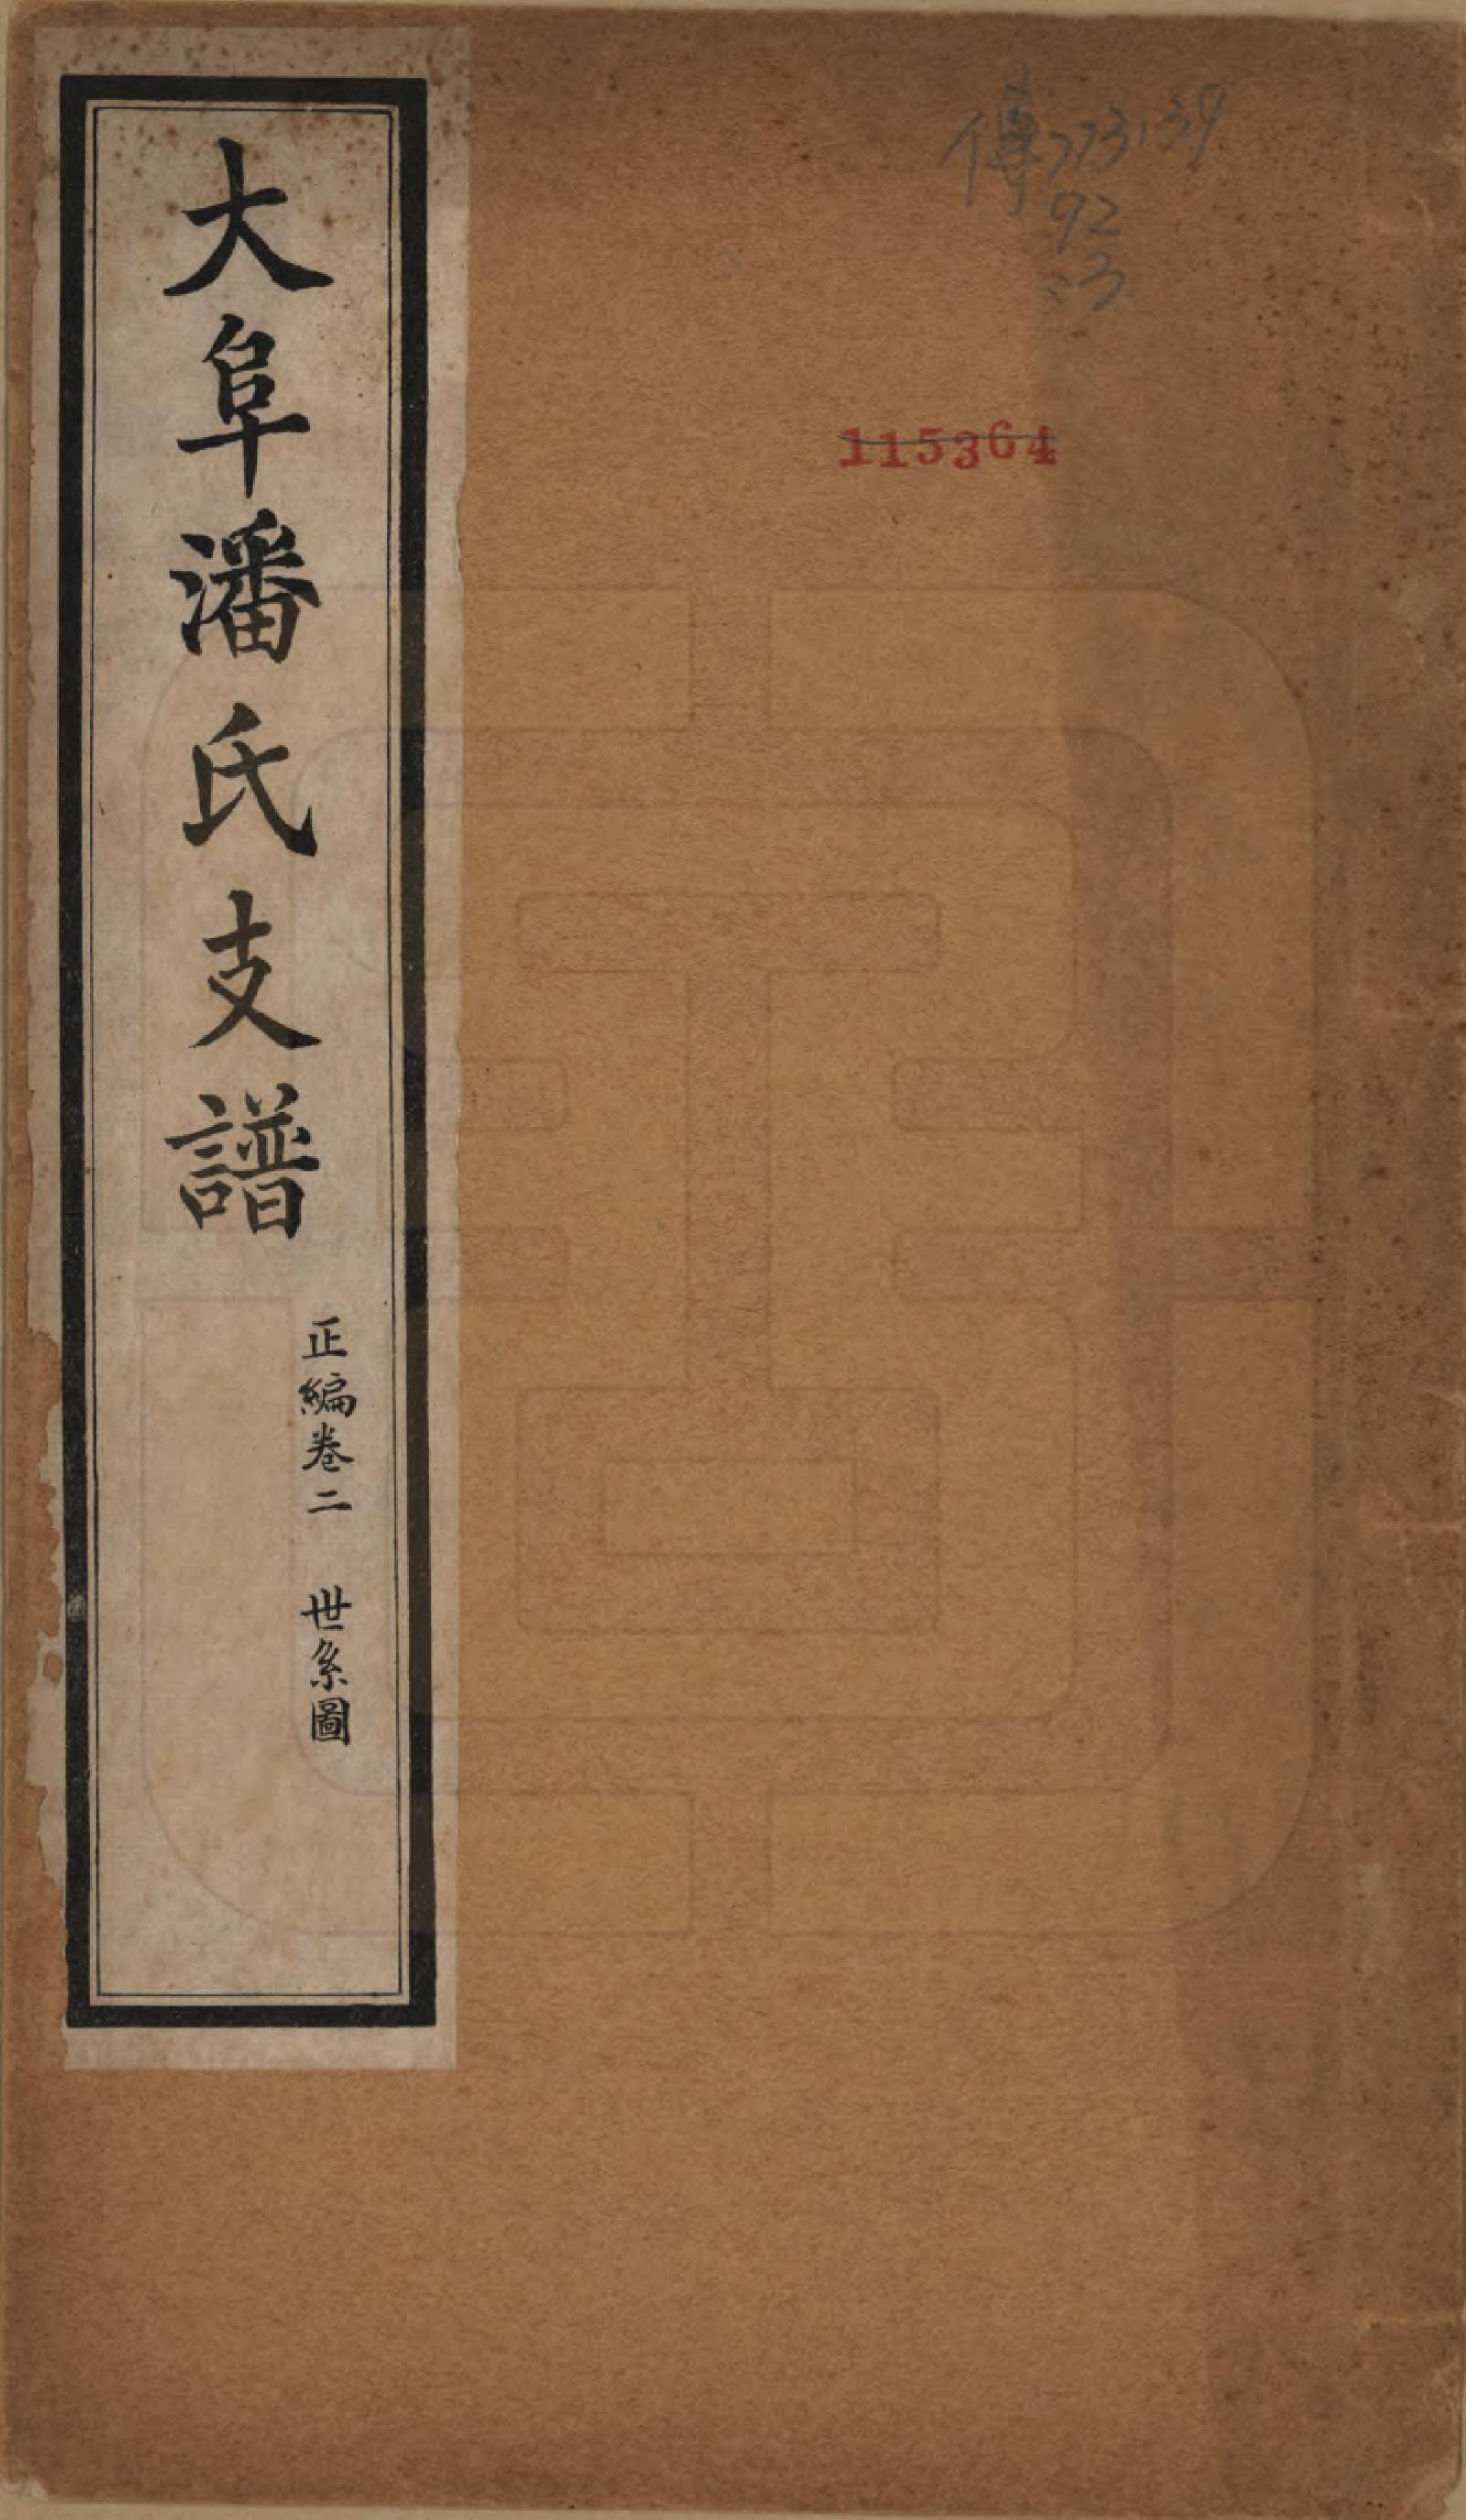 大阜潘氏支譜
正編卷二　世系圖
傳773.39
92
:3
115364